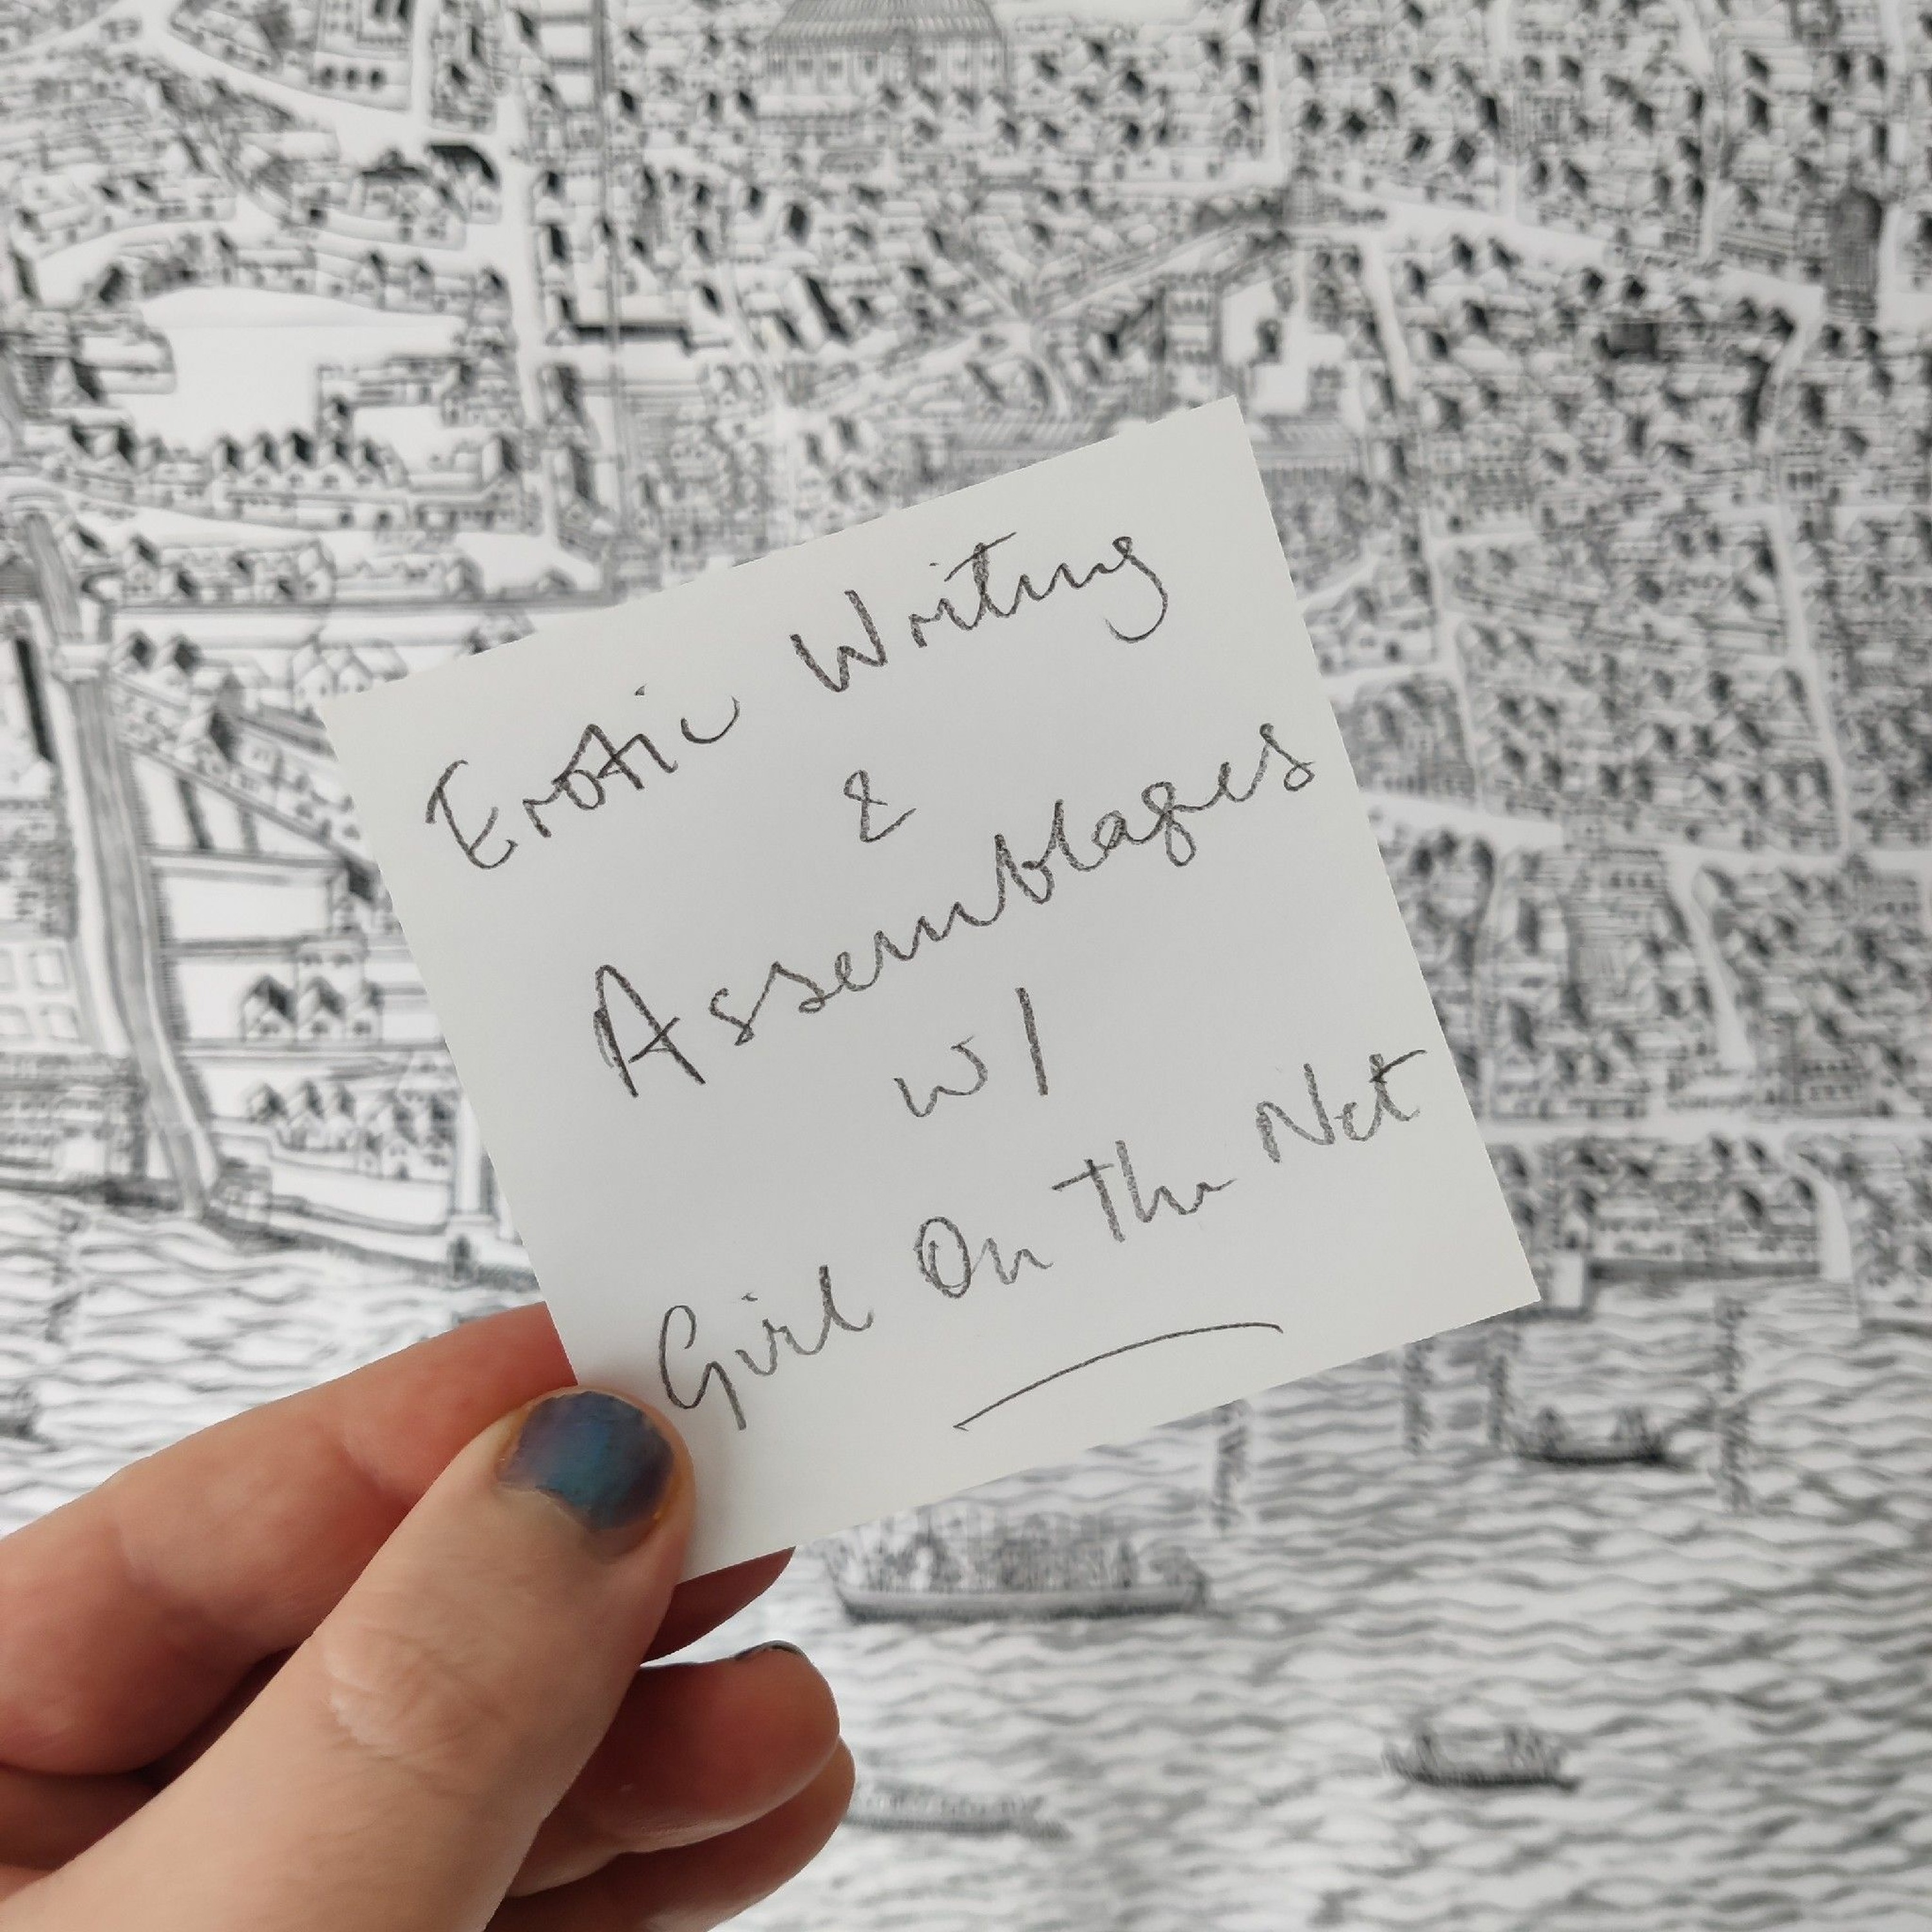 Erotic Writing
&
Assemblages
w/
Girl On The Net